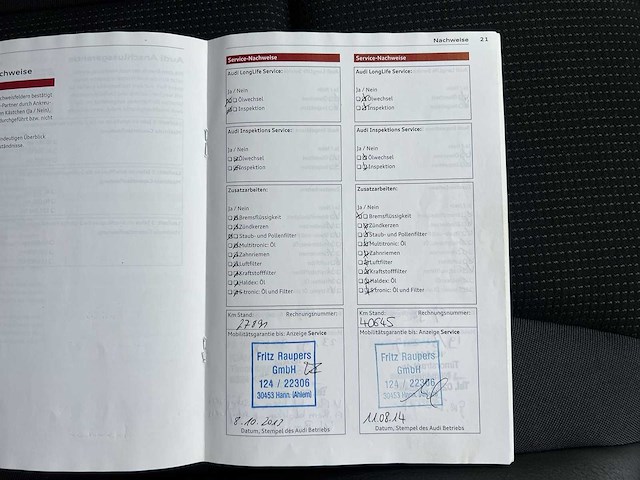 Nachweise 21
chweise
Service-Nachweise
Audi LongLife Service:
Ja / Nein
Ölwechsel
Inspektion
Audi Inspektions Service:
Ja / Nein
Ölwechsel
Inspektion
Zusatzarbeiten:
Ja / Nein
Bremsflüssigkeit
Zündkerzen
Staub- und Pollenfilter
Multitronic: Öl
Zahnriemen
Luftfilter
Kraftstofffilter
Haldex: Öl
S tronic: Öl und Filter
Km Stand: Rechnungsnummer:
Mobilitätsgarantie bis: Anzeige Service
Fritz Raupers
GmbH
124 / 22306
30453 Hann. (Ahlem)
8.10.2013
Datum, Stempel des Audi Betriebs
Service-Nachweise
Audi LongLife Service:
Ja / Nein
Ölwechsel
Inspektion
Audi Inspektions Service:
Ja / Nein
Ölwechsel
Inspektion
Zusatzarbeiten:
Ja / Nein
Bremsflüssigkeit
Zündkerzen
Staub- und Pollenfilter
Multitronic: Öl
Zahnriemen
Luftfilter
Kraftstofffilter
Haldex: Öl
S tronic: Öl und Filter
Km Stand: Rechnungsnummer:
40645
Mobilitätsgarantie bis: Anzeige Service
Fritz Raupers
GmbH
124 / 22306
30453 Hann.
11.08.14
Datum, Stempel des Audi Betriebs